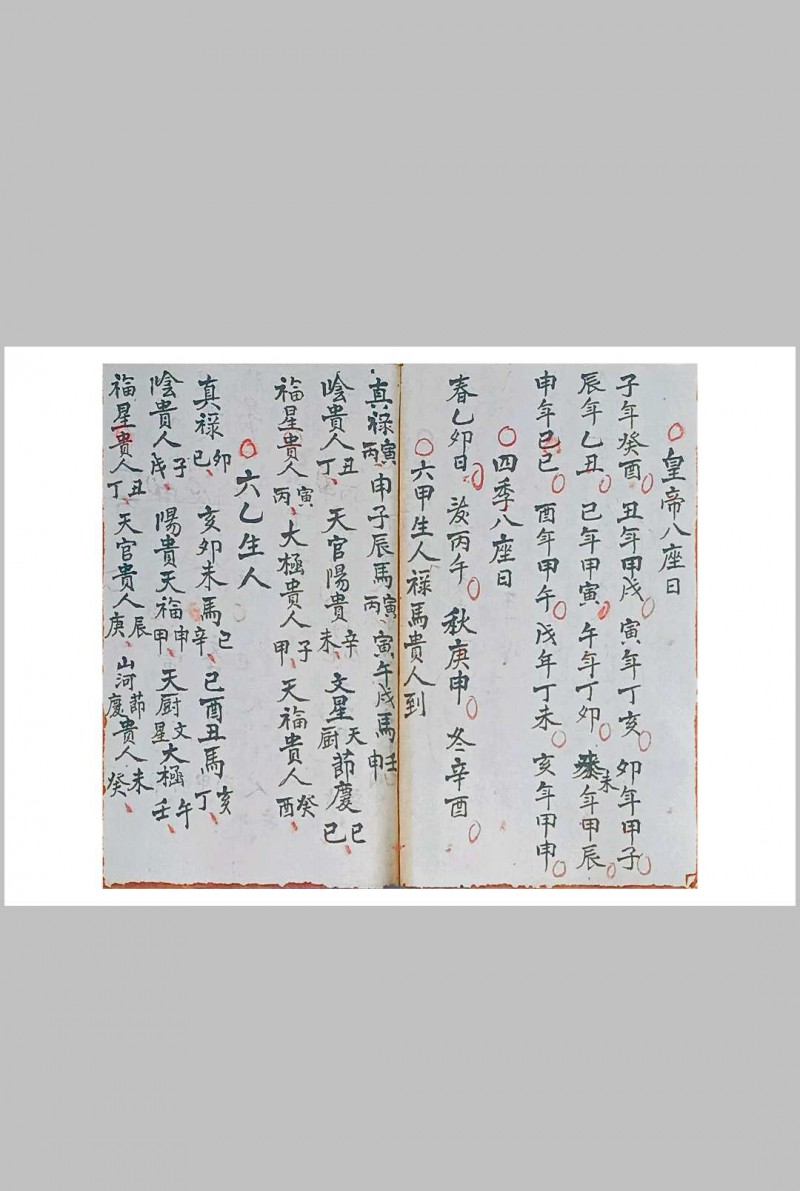 皇帝八座日
子年癸酉 丑年甲戌 寅年丁亥 卯年甲子
辰年乙丑 巳年甲寅 午年丁卯 未年甲辰
申年己巳 酉年甲午 戌年丁未 亥年甲申
四季八座日
春乙卯日 夏丙午 秋庚申 冬辛酉
六甲生人祿馬貴人到
真祿丙寅 申子辰馬丙寅 寅午戌馬壬申
陰貴人丁丑 天官陽貴辛未 文星天厨節度己巳
福星貴人丙寅 大極貴人甲子 天福貴人癸酉
六乙生人
真祿己卯 亥卯未馬辛巳 巳酉丑馬丁亥
陰貴人戊子 陽貴天福甲申 天厨文星大極壬午
福星貴人丁丑 天官貴人庚辰 山河節度貴人癸未